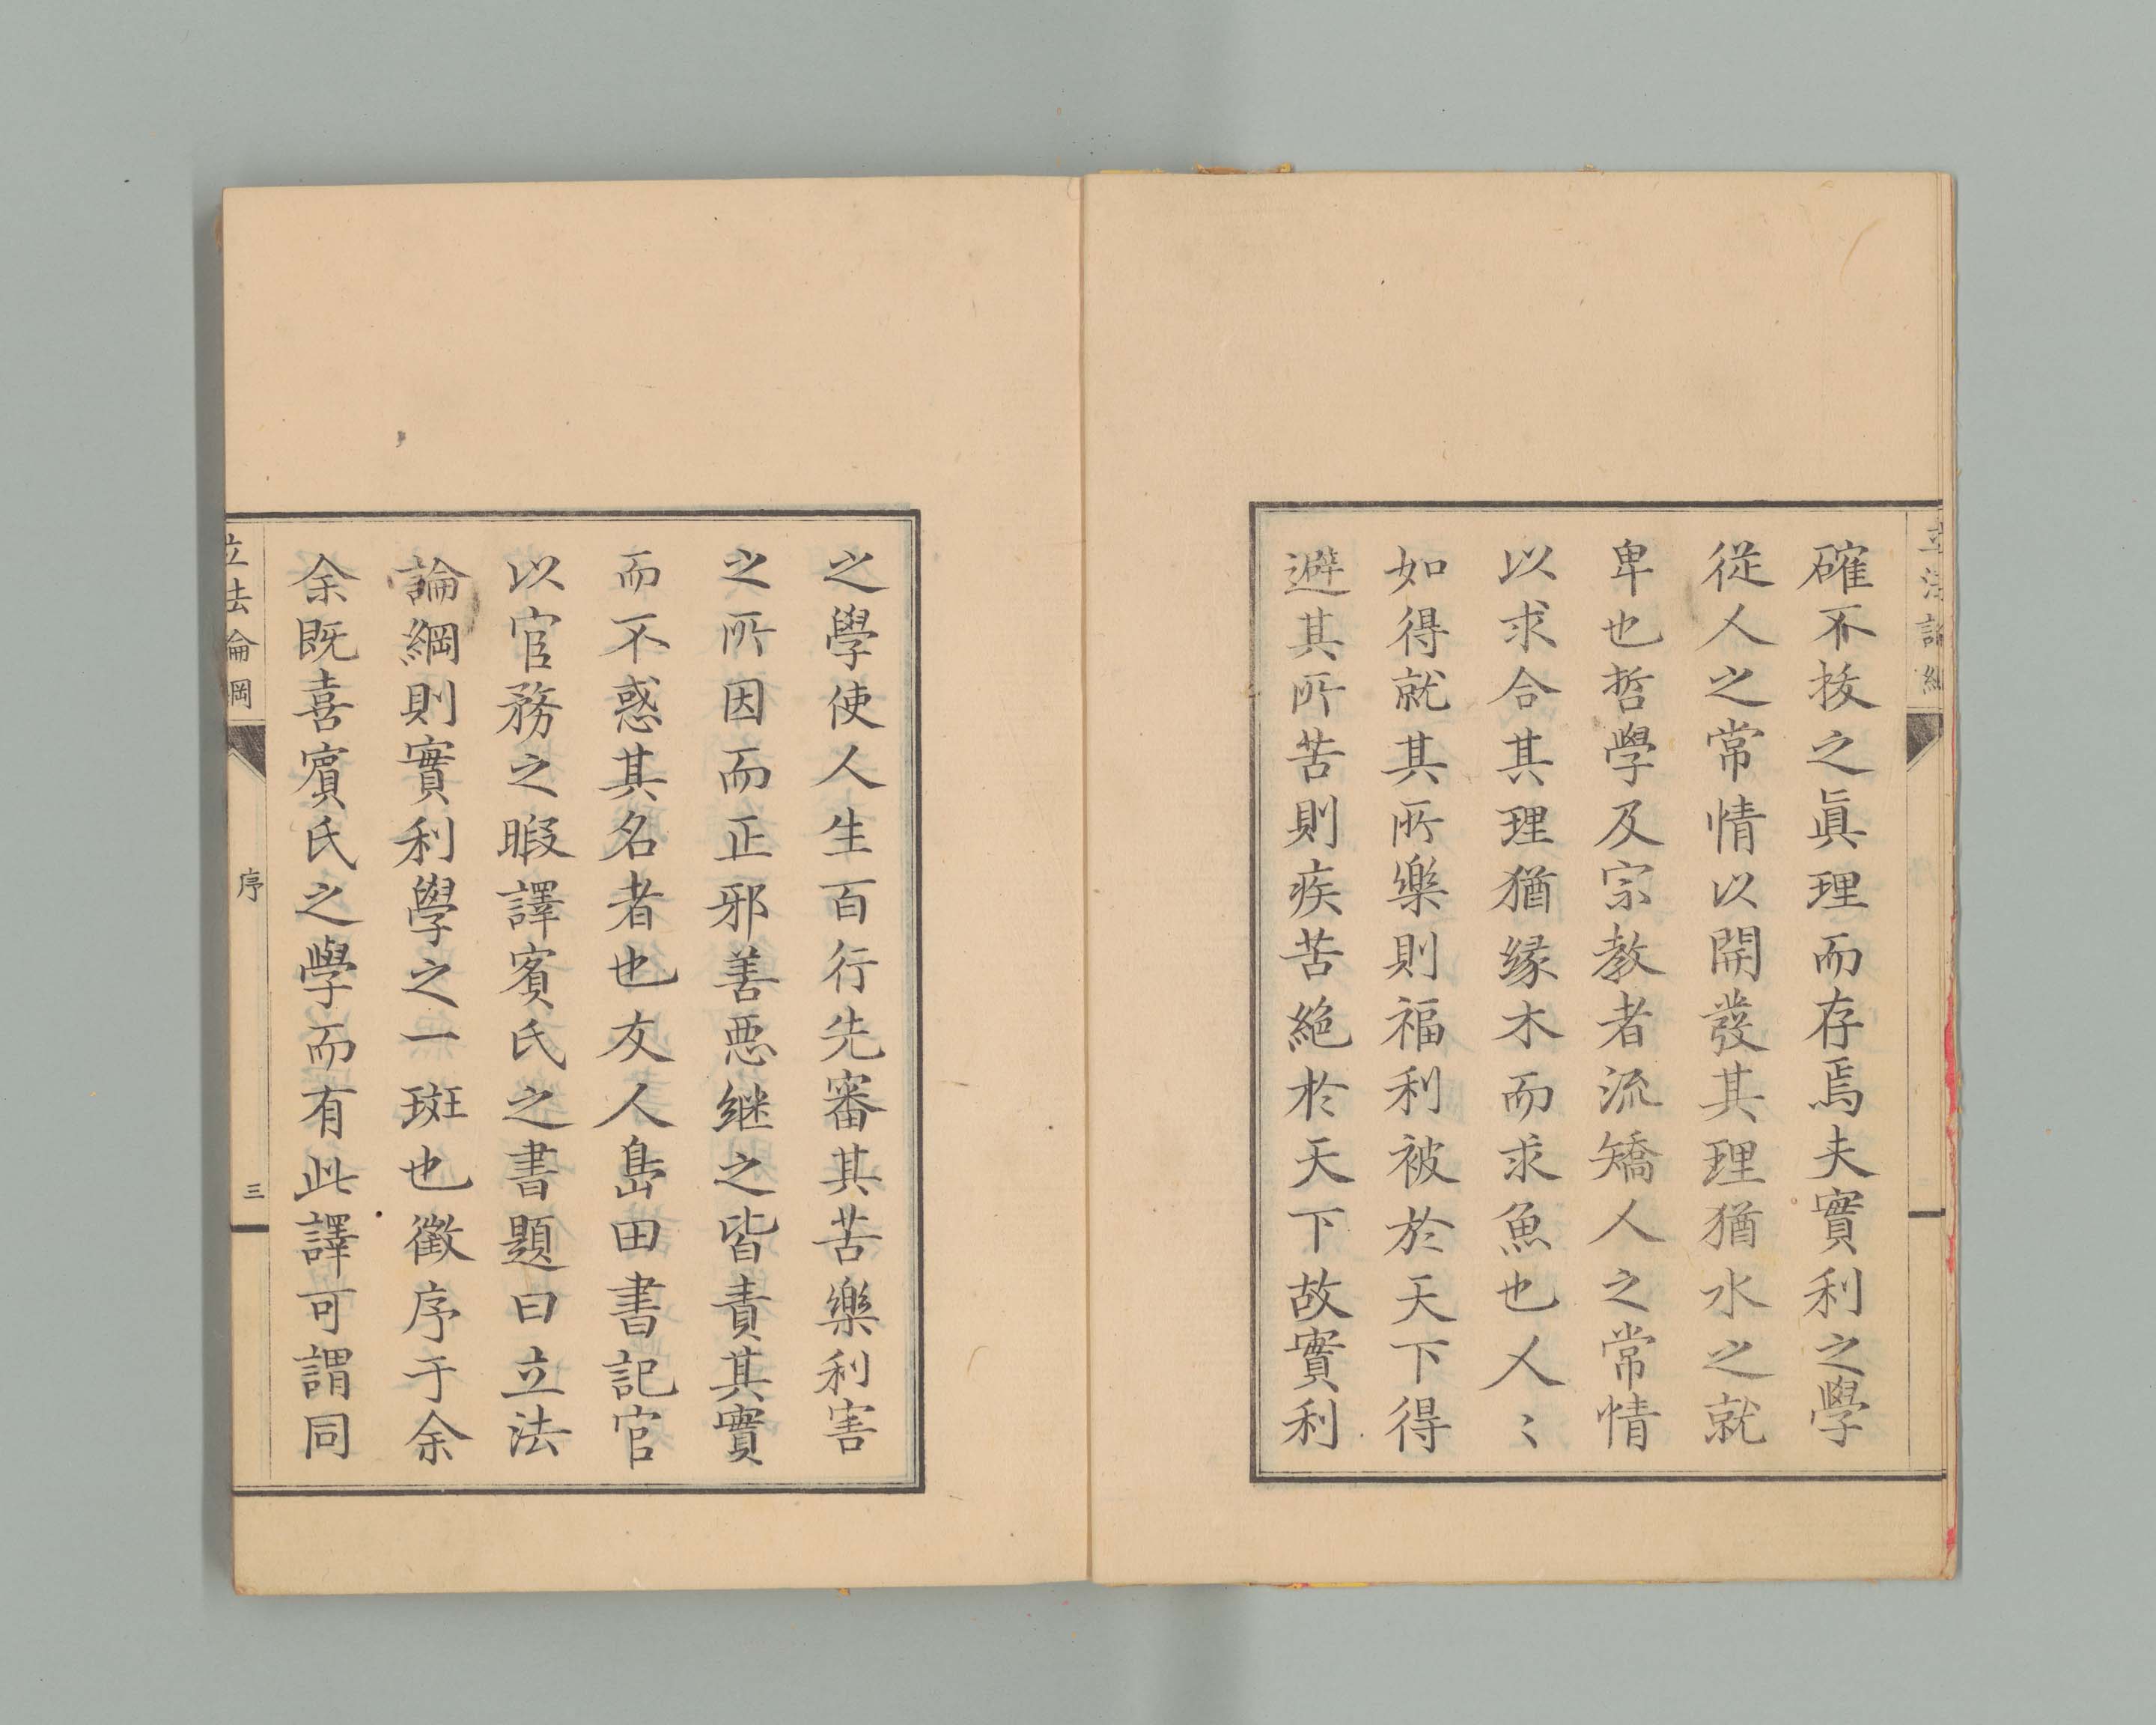 立法論綱
確不抜之眞理而存焉夫實利之學
從人之常情以開發其理猶水之就
卑也哲學及宗教者流矯人之常情
以求合其理猶緣木而求魚也人〻
如得就其所樂則福利被於天下得
避其所苦則疾苦絶於天下故實利
之學使人生百行先審其苦樂利害
之所因而正邪善惡継之皆責其實
而不惑其名者也友人島田書記官
以官務之暇譯賓氏之書題曰立法
論綱則實利學之一斑也徵序于余
余既喜賓氏之學而有此譯可謂同
立法論綱
序
三